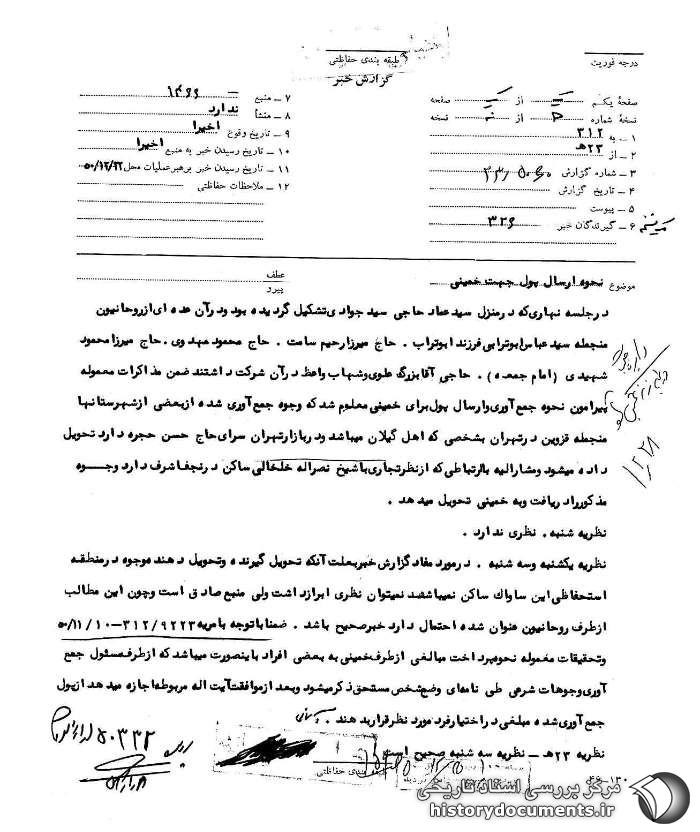 درجه فوریت
طبقه بندی حفاظتی
گزارش خبر
صفحهٔ یکم از صفحه
نسخهٔ شماره از نسخه
۱ ـ به ۳۱۲
۲ ـ از ۲۳هـ
۳ ـ شماره گزارش
۴ ـ تاریخ گزارش
۵ ـ پیوست
۶ ـ گیرندگان خبر ۳۲۶
۷ ـ منبع ۱۳۶۶
۸ ـ منشأ ندارد
۹ ـ تاریخ وقوع اخیرا
۱۰ ـ تاریخ رسیدن خبر به منبع اخیرا
۱۱ ـ تاریخ رسیدن خبر برهبر عملیات محل ۵۰/۱۲/۲۲
۱۲ ـ ملاحظات حفاظتی
موضوع نحوه ارسال پول جهت خمینی
عطف
پیرو
درجلسه نهاری که درمنزل سید عماد حاجی سید جوادی تشکیل گردیده بود ودرآن عده ای ازروحانیون
منجمله سید عباس ابوترابی فرزند ابوتراب . حاج میرزا رحیم سامت . حاج محمود مهدوی . حاج میرزا محمود
شهیدی (امام جمعه) . حاجی آقا بزرگ علوی وشهاب واعظ درآن شرکت داشتند ضمن مذاکرات معموله
پیرامون نحوه جمع آوری وارسال پول برای خمینی معلوم شد که وجوه جمع آوری شده ازبعضی ازشهرستانها
منجمله قزوین درتهران بشخصی که اهل گیلان میباشد ودربازارتهران سرای حاج حسن حجره دارد تحویل
داده میشود ومشارالیه باارتباطی که ازنظرتجاری باشیخ نصراله خلخالی ساکن درنجف اشرف دارد وجوه
مذکوررادریافت وبه خمینی تحویل میدهد .
نظریه شنبه . نظری ندارد .
نظریه یکشنبه وسه شنبه . درمورد مفاد گزارش خبربعلت آنکه تحویل گیرنده وتحویل دهند موجود درمنطقه
استحفاظی این ساواک ساکن نمیباشند نمیتوان نظری ابراز داشت ولی منبع صادق است وچون این مطالب
ازطرف روحانیون عنوان شده احتمال دارد خبرصحیح باشد . ضمنا باتوجه بامریه ۳۱۲/۹۲۲۳-۵۰/۱۱/۱۰
وتحقیقات معموله نحوه پرداخت مبالغی ازطرف خمینی به بعضی افراد باینصورت میباشد که ازطرف مسئول جمع
آوری وجوهات شرعی طی نامه ای وضع شخص مستحق ذکرمیشود وبعد ازموافقت آیت اله مربوطه اجازه میدهد ازپول
جمع آوری شده مبلغی دراختیارفرد مورد نظرقرارد هند .
نظریه ۲۳هـ ـ نظریه سه شنبه صحیح است
بندی حفاظتی
مرکز بررسی اسناد تاریخی
historydocuments.ir